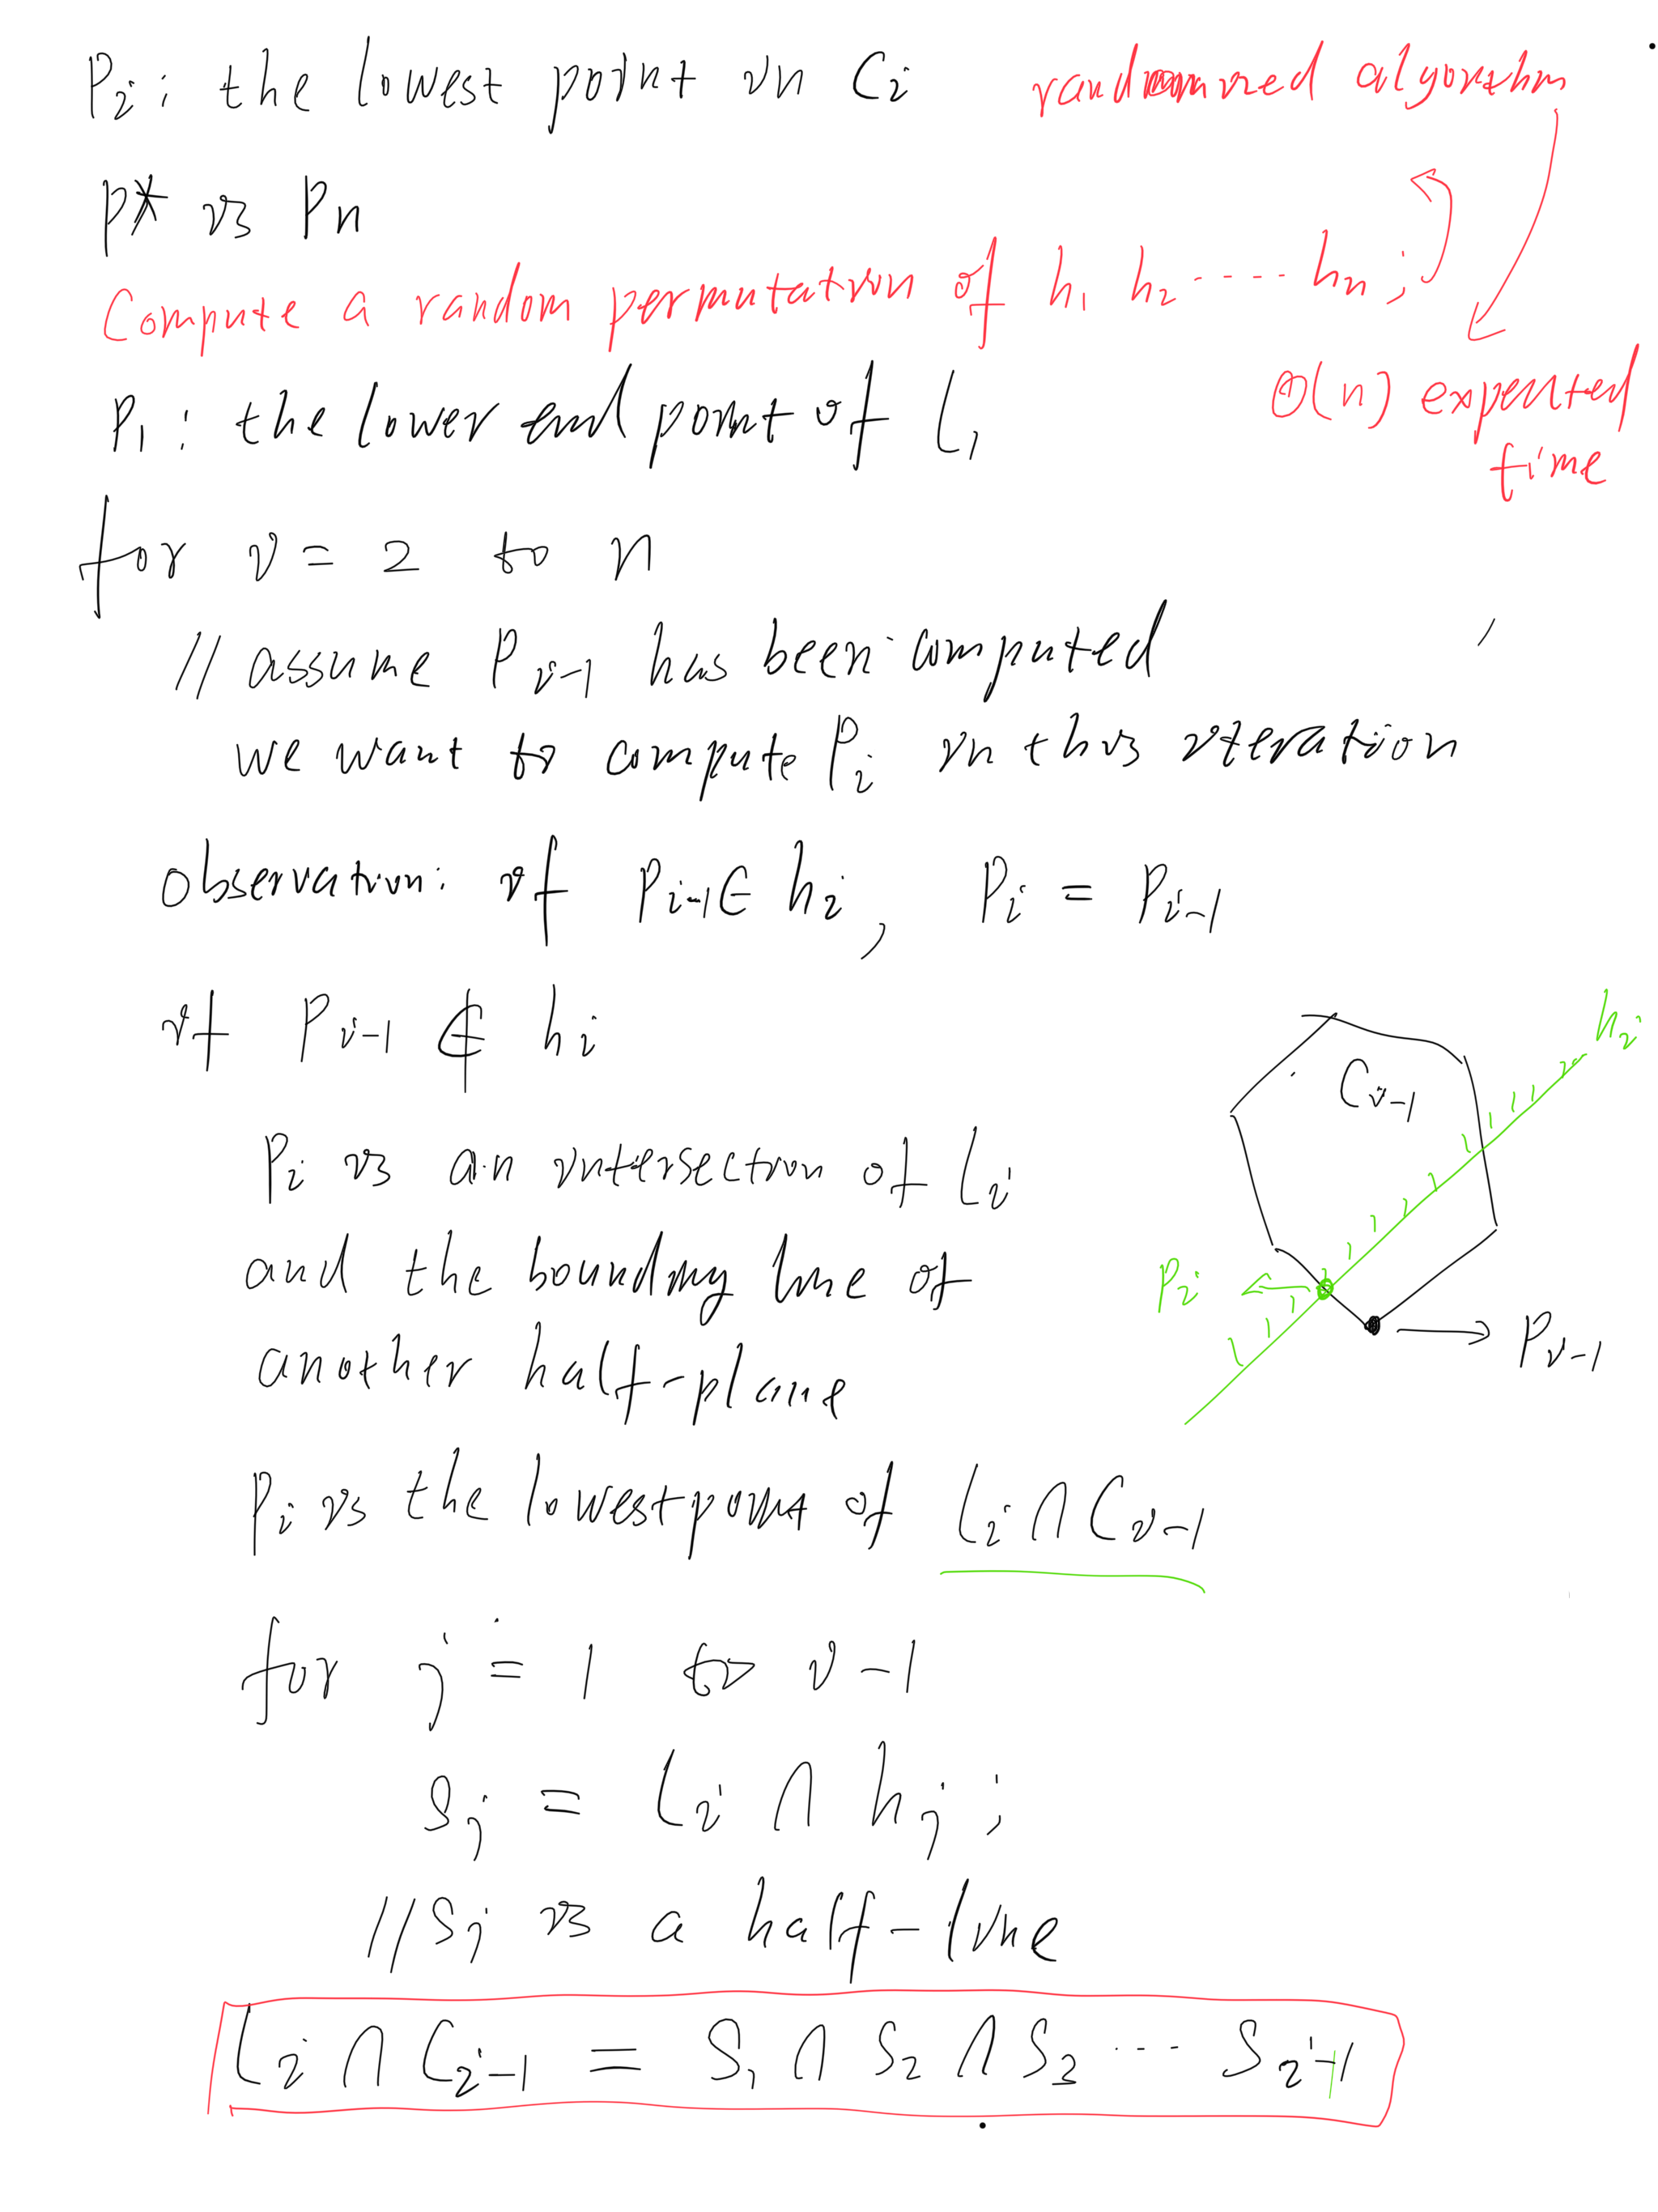 P_i : the lowest point on C_i
randomized algorithm
P* is P_n
Compute a random permutation of h_1 h_2 ----- h_n ;
O(n) expected
time
P_1 : the lower end point of l_1
for i = 2 to n
// assume P_{i-1} has been computed
we want to compute P_i in this iteration
observation: if P_{i-1} ∈ h_i , P_i = P_{i-1}
if P_{i-1} ∉ h_i
h_i
C_{i-1}
P_i is an intersection of l_i
and the bounding line of
another half-plane
P_i
P_{i-1}
P_i is the lowest point of l_i ∩ C_{i-1}
for j = 1 to i-1
S_j = l_i ∩ h_j ;
// S_j is a half-line
l_i ∩ C_{i-1} = S_1 ∩ S_2 ∩ S_3 --- S_{i-1}